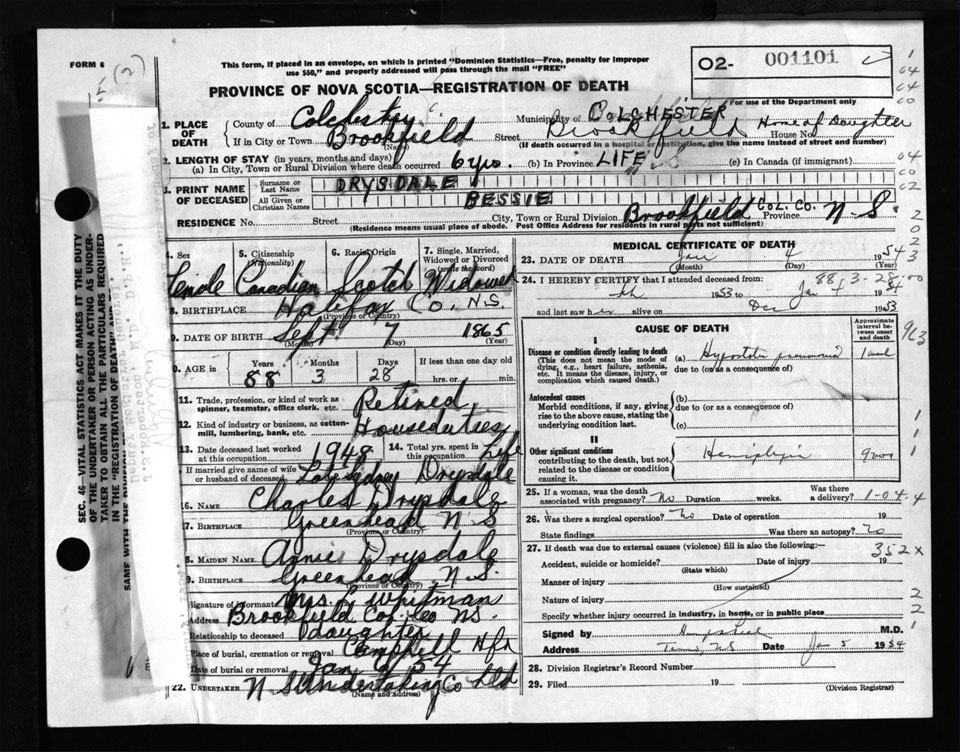 FORM 6
(2)
This form, if placed in an envelope, on which is printed "Dominion Statistics—Free, penalty for improper
use $50," and properly addressed will pass through the mail "FREE"
O2- 001101
PROVINCE OF NOVA SCOTIA—REGISTRATION OF DEATH
For use of the Department only
1. PLACE OF DEATH
County of Colchester Municipality of COLCHESTER
If in City or Town Brookfield Street Brookfield House No. Home of Daughter
(Name)
(If death occurred in a hospital or institution, give the name instead of street and number)
2. LENGTH OF STAY (in years, months and days)
(a) In City, Town or Rural Division where death occurred 6 yrs. (b) In Province LIFE (c) In Canada (if immigrant)
3. PRINT NAME OF DECEASED
Surname or Last Name DRYSDALE
All Given or Christian Names BESSIE
RESIDENCE No. Street City, Town or Rural Division Brookfield COL. CO. Province N-S.
(Residence means usual place of abode. Post Office Address for residents in rural parts not sufficient)
4. Sex 5. Citizenship (Nationality) 6. Racial Origin 7. Single, Married, Widowed or Divorced (write the word)
Female Canadian Scotch Widowed
8. BIRTHPLACE Halifax Co. N.S.
(Province or Country)
9. DATE OF BIRTH Sept. 7 1865
(Month) (Day) (Year)
10. AGE IN Years Months Days If less than one day old
88 3 28 hrs. or min.
11. Trade, profession, or kind of work as spinner, teamster, office clerk, etc. Retired
12. Kind of industry or business, as cotton-mill, lumbering, bank, etc. Houseduties
13. Date deceased last worked at this occupation 1948 14. Total yrs. spent in this occupation Life
If married give name of wife or husband of deceased Sidney Drysdale
16. NAME Charles Drysdale
17. BIRTHPLACE Greenhead N S
(Province or Country)
18. MAIDEN NAME Annie Drysdale
19. BIRTHPLACE Greenhead N.S.
(Province or Country)
Signature of informant Mrs. L Whitman
Address Brookfield Col. Co NS.
Relationship to deceased daughter
Place of burial, cremation or removal Campbell Hfx
Date of burial or removal Jan 54
22. UNDERTAKER N S Undertaking Co Ltd
(Name and address)
MEDICAL CERTIFICATE OF DEATH
23. DATE OF DEATH Jan 4 1954
(Month) (Day) (Year)
24. I HEREBY CERTIFY that I attended deceased from:
88-3-28
1953 to Jan 4 1954
and last saw her alive on Dec 1953
CAUSE OF DEATH
Approximate interval between onset and death
I
Disease or condition directly leading to death
(This does not mean the mode of dying, e.g., heart failure, asthenia, etc. It means the disease, injury, or complication which caused death.)
(a) Hypostatic pneumonia 1 week
due to (or as a consequence of)
Antecedent causes
Morbid conditions, if any, giving rise to the above cause, stating the underlying condition last.
(b)
due to (or as a consequence of)
(c)
II
Other significant conditions
contributing to the death, but not related to the disease or condition causing it.
Hemiplegia
25. If a woman, was the death associated with pregnancy? No Duration weeks. Was there a delivery? 1-04.4
26. Was there a surgical operation? No Date of operation 19
State findings Was there an autopsy? No
27. If death was due to external causes (violence) fill in also the following:—
352x
Accident, suicide or homicide? Date of injury 19
(State which)
Manner of injury
(How sustained)
Nature of injury
Specify whether injury occurred in industry, in home, or in public place
Signed by M.D.
Address Truro, N.S Date Jan 5 1954
28. Division Registrar's Record Number
29. Filed 19
(Division Registrar)
SEC. 46—VITAL STATISTICS ACT MAKES IT THE DUTY
OF THE UNDERTAKER OR PERSON ACTING AS UNDER-
TAKER TO OBTAIN ALL THE PARTICULARS REQUIRED
IN THE "REGISTRATION OF DEATH"
SAME WITH